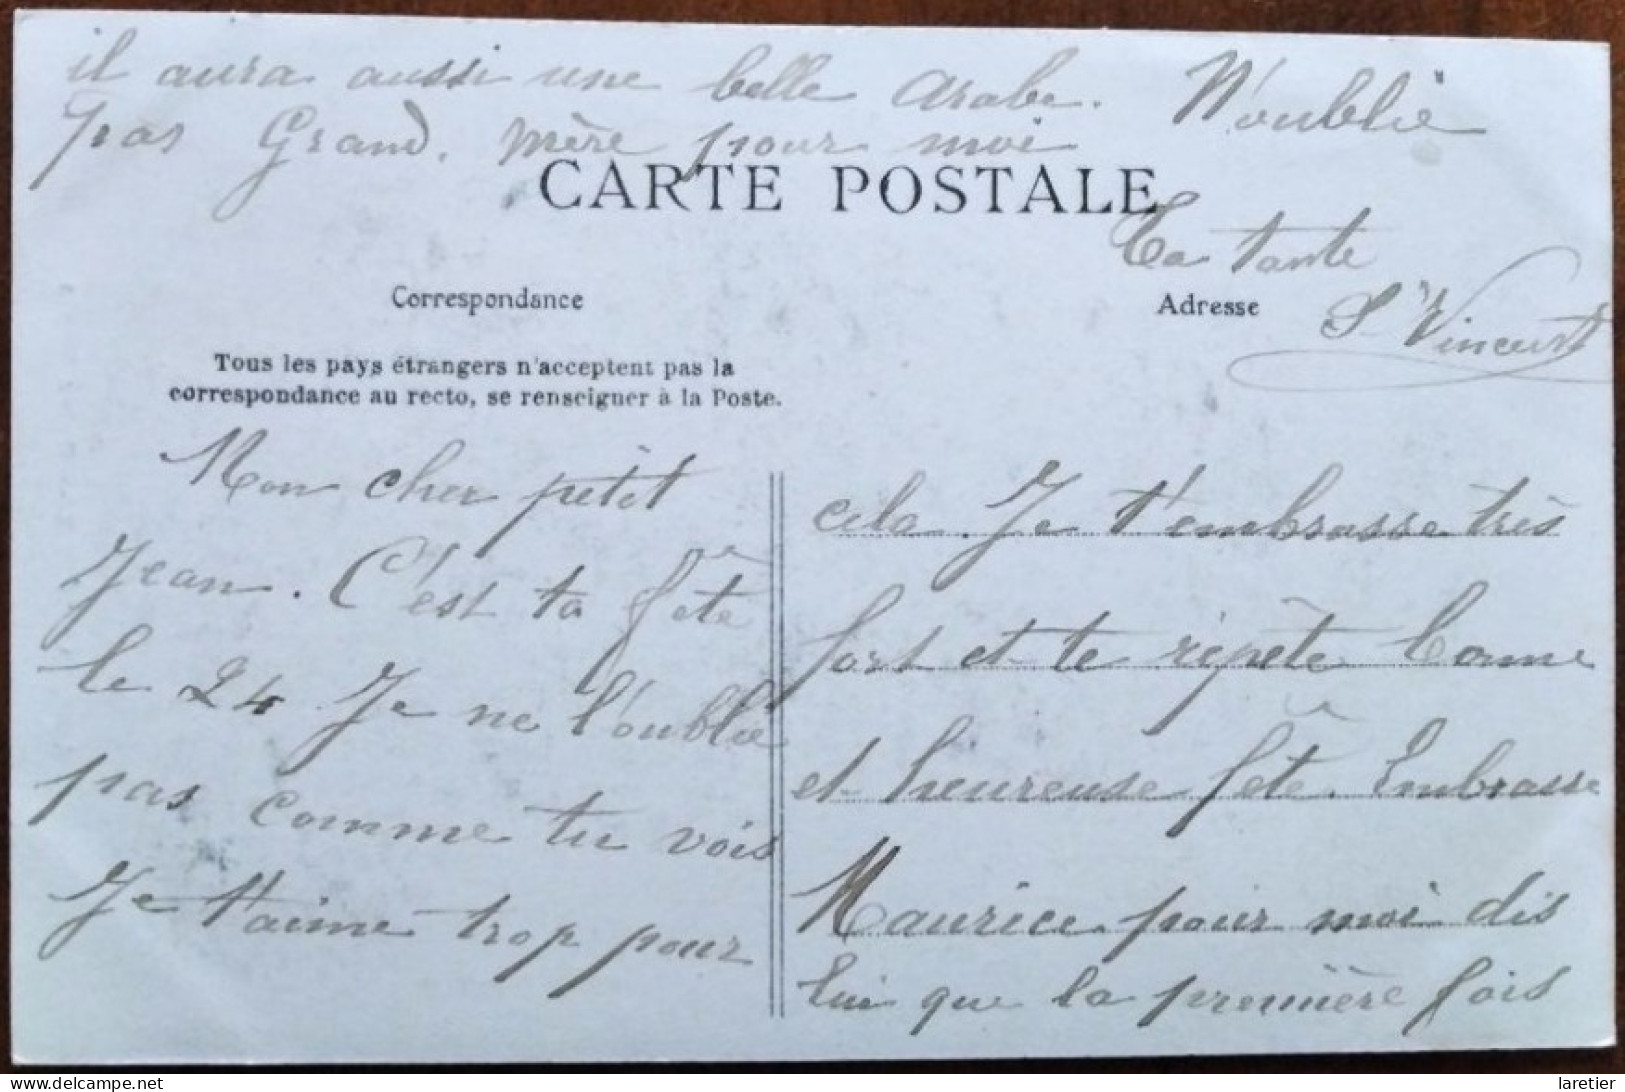 il aura aussi une belle arabe. N'oublie
pas Grand. mère pour moi
CARTE POSTALE
Ta tante
St Vincent
Correspondance
Adresse
Tous les pays étrangers n'acceptent pas la
correspondance au recto, se renseigner à la Poste.
Mon cher petit
Jean. C'est ta fête
le 24 Je ne l'oublie
pas comme tu vois
Je t'aime trop pour
cela. Je t'embrasse très
fort et te répète bonne
et heureuse fête. Embrasse
Maurice pour moi dis
lui que la première fois
Delcampe.net
laretier